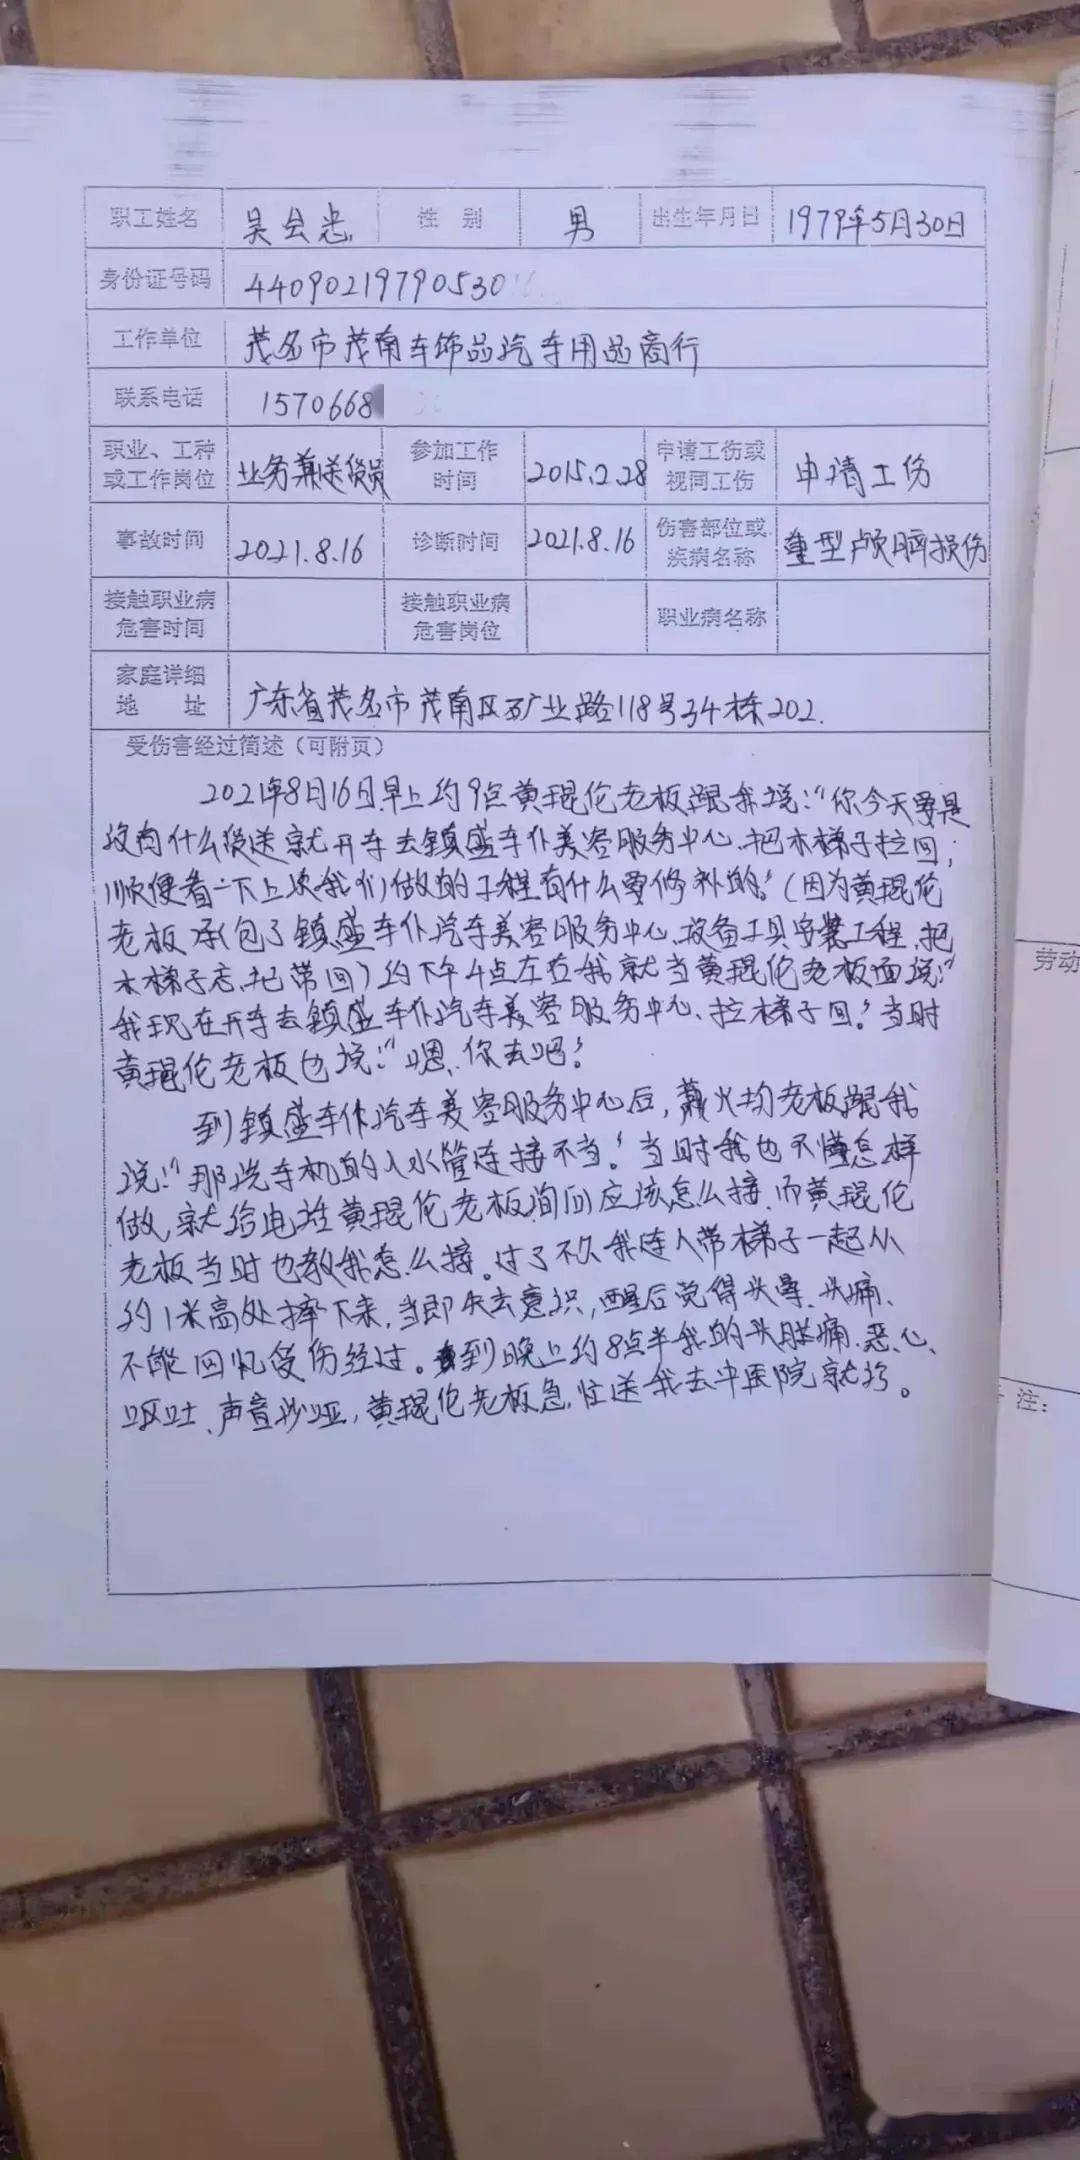 职工姓名 吴会忠 性 别 男 出生年月日 1979年5月30日
身份证号码 44090219790530
工作单位 茂名市茂南车饰品汽车用品商行
联系电话 1570668
职业、工种或工作岗位 业务兼送货员 参加工作时间 2015.2.28 申请工伤或视同工伤 申请工伤
事故时间 2021.8.16 诊断时间 2021.8.16 伤害部位或疾病名称 重型颅脑损伤
接触职业病危害时间 接触职业病危害岗位 职业病名称
家庭详细地 址 广东省茂名市茂南区矿业路118号34栋202.
受伤害经过简述（可附页）
2021年8月16日早上约9点黄琨伦老板跟我说:“你今天要是
没有什么货送就开车去镇盛车仆美容服务中心、把木梯子拉回;
顺便看一下上次我们做的工程有什么要修补的.”(因为黄琨伦
老板承包了镇盛车仆汽车美容服务中心、设备工具安装工程、把
木梯子忘记带回)约下午4点左右我就当黄琨伦老板面说:“
我现在开车去镇盛车仆汽车美容服务中心、拉梯子回.”当时
黄琨伦老板也说:“嗯、你去吧.”
到镇盛车仆汽车美容服务中心后,戴火均老板跟我
说:“那洗车机的入水管连接不当.”当时我也不懂怎样
做,就给电话黄琨伦老板询问应该怎么接.而黄琨伦
老板当时也教我怎么接。过了不久我连人带梯子一起从
约1米高处摔下来,当即失去意识,醒后觉得头晕、头痛、
不能回忆受伤经过。到晚上约8点半我的头胀痛、恶心、
呕吐、声音沙哑,黄琨伦老板急忙送我去中医院就诊。
劳动
注：